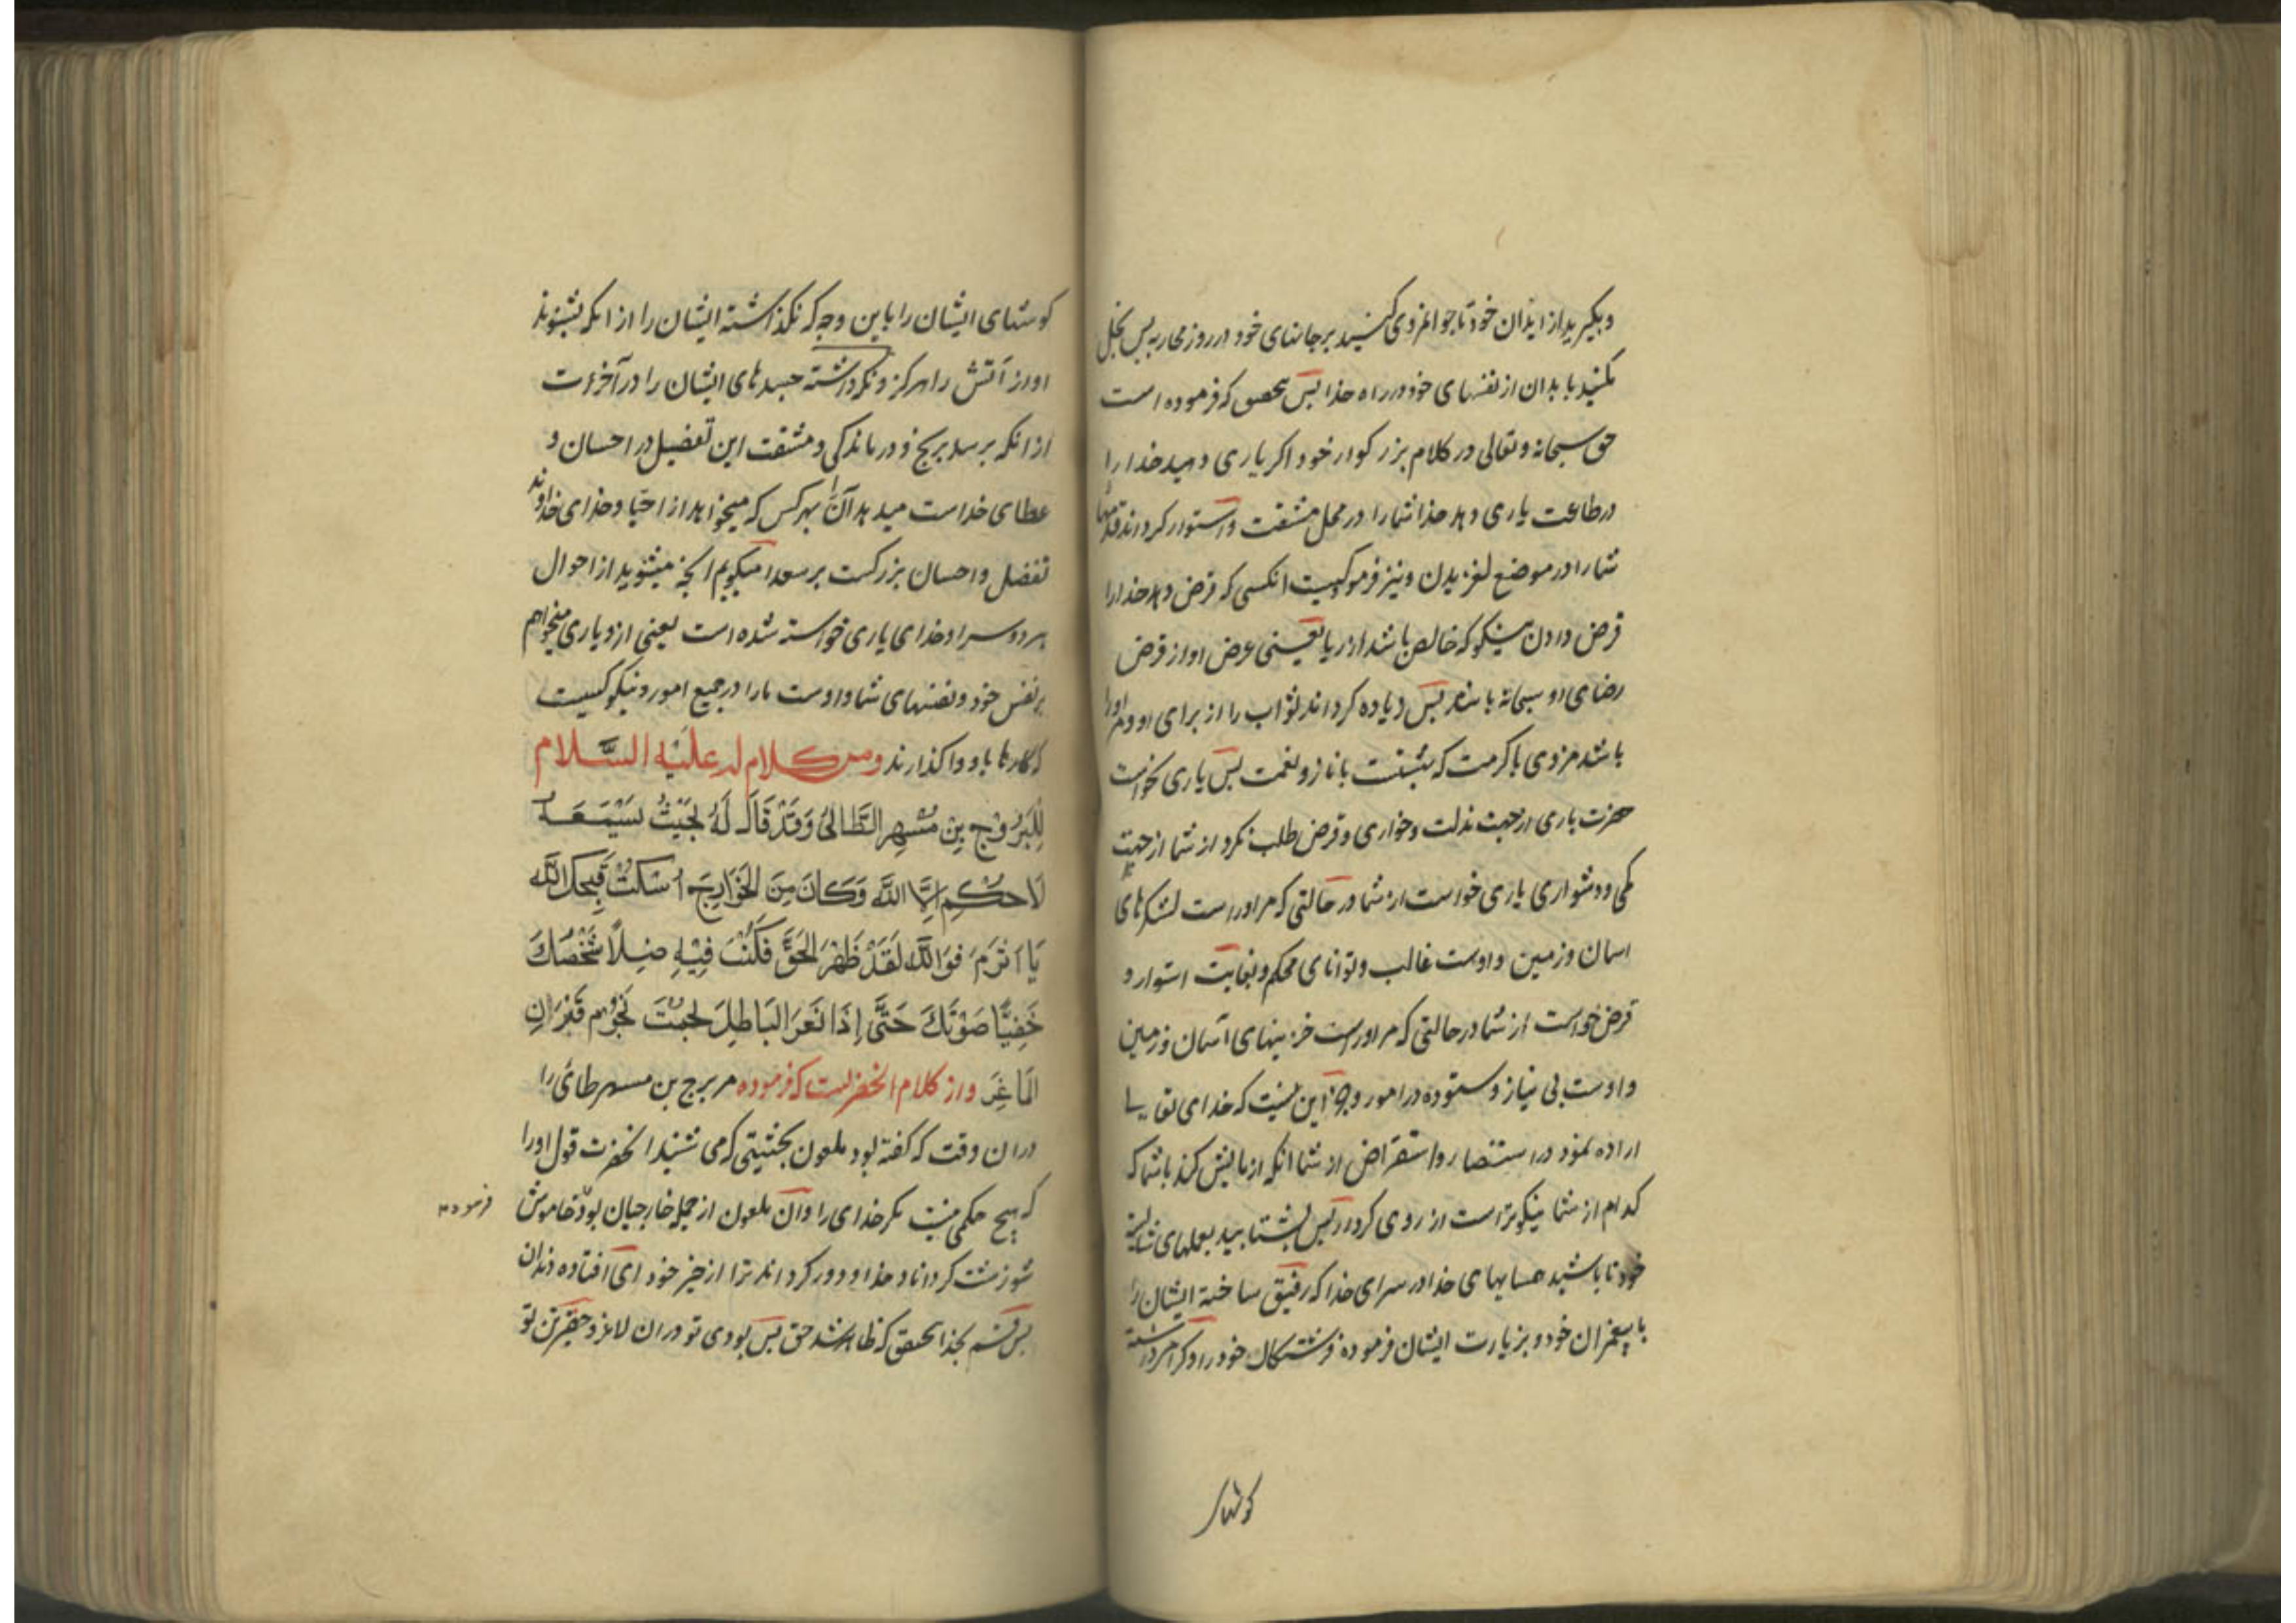 وبگیرید از ابدان خود تا جوانمردی کنید بر جانهای خود در روز محاربه پس بخل
مکنید بابدان از نفسهای خود در راه خدا پس بتحقیق که فرموده است
حق سبحانه و تعالی در کلام بزرکوار خود اکر یاری دهید خدا را
در طاعت یاری دهد خدا شما را در محل مشقت و استوار کرداند قدمهای
شما را در موضع لغزیدن و نیز فرمود کیست انکسی که قرض دهد خدا را
قرض دادن نیکو که خالص باشد از ریا یعنی غرض او از قرض
رضای او سبحانه باشد پس زیاده کرداند ثواب را از برای او و مر او را
باشد مزدی با کرمت که بهشتست با ناز و نعمت پس یاری نخواست
حضرت باری از جهت مذلت و خواری و قرض طلب نکرد از شما از جهت
کمی و دشواری یاری خواست از شما در حالتی که مر اوراست لشکرهای
اسمان و زمین و اوست غالب و توانای محکم و بغایت استوار و
قرض خواست از شما در حالتی که مر اوراست خزینهای آسمان و زمین
و اوست بی نیاز و ستوده در امور و جز این نیست که خدای تعالی
اراده نمود در استنصار و استقراض از شما انکه ازمایش کند با شما که
کدام از شما نیکوتر است از روی کردار پس بشتابید بعملهای شایسته
خود تا باشید همسایهای خدا در سرای خدا که رفیق ساخته ایشان را
با پیغمبران خود و بزیارت ایشان فرموده فرشتکان خود را و کرامی داشته
کوشهای
کوشهای ایشان را باین وجه که نکذاشته ایشان را از انکه بشنوند
اواز آتش را هرکز و نکرداشته جسدهای ایشان را در آخرت
از انکه برسد برنج و درماندکی و مشقت این تفضیل در احسان و
عطای خداست میدهد آن را بهر کس که میخواهد از احبا و خدای خداوند
تفضل و احسان بزرکست بر سعدا میکویم انچه میشنوید از احوال
هر دو سرا و خدای یاری خواسته شده است یعنی از و یاری میخواهم
بر نفس خود و نفسهای شما و اوست ما را در جمیع امور و نیکو کسیست
که کارها باو واکذارند ومن کلام له علیه السلام
لِلبُرُوجِ بنِ مُسْهِرِ الطَّائیُ وَقَدْ قَالَ لَهُ بِحَیْثُ یَسْمَعُهُ
لَا حُکْمَ اِلَّا اللّه وَکَانَ مِنَ الخَوَارِجِ اُسْکُتْ قَبَحَکَ اللّه
یَا اَثْرَمُ فَوَاللّهِ لَقَدْ ظَهَرَ الحَقُّ فَکُنْتَ فِیْهِ ضَئِیلًا شَخْصُکَ
خَفِیًّا صَوْتُکَ حَتَّی اِذَا نَعَرَ البَاطِلُ نَجَمْتَ نُجُوْمَ قَرْنِ
المَاعِزِ واز کلام انحضرتست که فرموده مر برج بن مسهر طائی را
در ان وقت که کفته بود ملعون بحیثیتی که می شنید انحضرت قول او را
که هیچ حکمی نیست مکر خدای را و آن ملعون از جمله خارجیان بود خاموش
فرموده
شو زشت کرداناد خدا و دور کرداند ترا از خیر خود ای افتاده دندان
پس قسم بخدا بتحقیق که ظاهر شد حق پس بودی تو در ان لاغر و حقیر تن تو